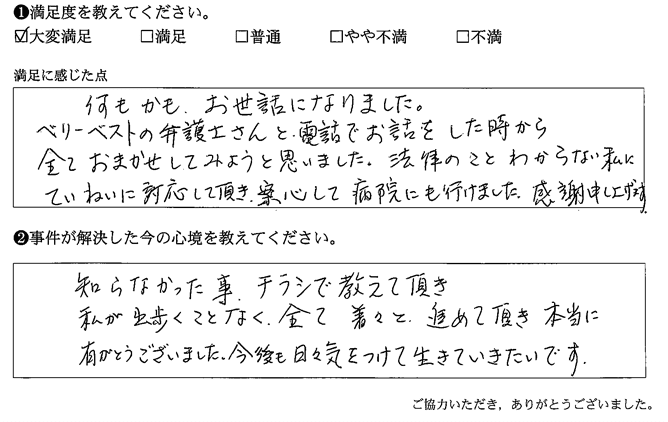 ❶満足度を教えてください。
☑大変満足 □満足 □普通 □やや不満 □不満
満足に感じた点
何もかも、お世話になりました。
ベリーベストの弁護士さんと、電話でお話をした時から
全ておまかせしてみようと思いました。法律のことわからない私に
ていねいに対応して頂き、安心して病院にも行けました。感謝申し上げます。
❷事件が解決した今の心境を教えてください。
知らなかった事、チラシで教えて頂き
私が出歩くことなく、全て着々と、進めて頂き本当に
有がとうございました。今後も日々気をつけて生きていきたいです。
ご協力いただき，ありがとうございました。